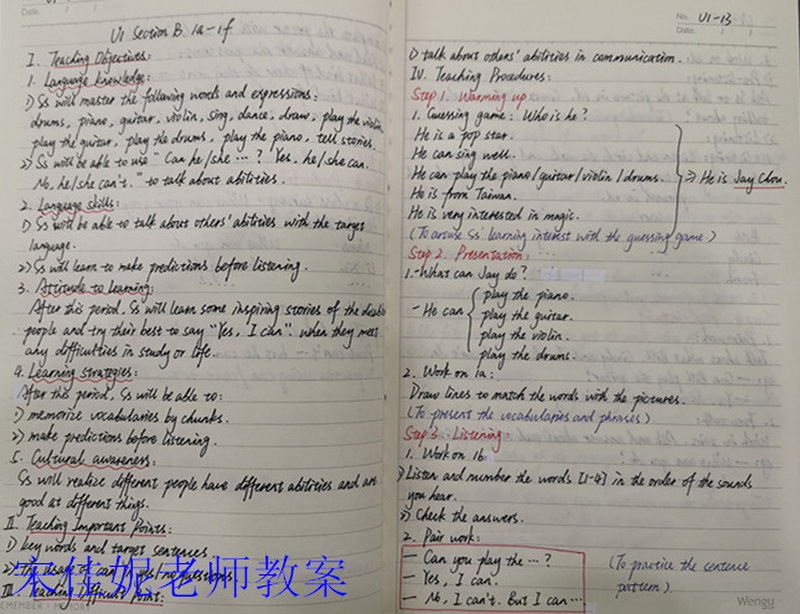 Date.
U1 Section B 1a-1f
I. Teaching Objectives:
1. Language knowledge:
1) Ss will master the following words and expressions:
drums, piano, guitar, violin, sing, dance, draw, play the violin,
play the guitar, play the drums, play the piano, tell stories.
2) Ss will be able to use "Can he/she …? Yes, he/she can.
No, he/she can't." to talk about abilities.
2. Language skills:
1) Ss will be able to talk about others' abilities with the target
language.
2) Ss will learn to make predictions before listening.
3. Attitude to Learning:
After this period, Ss will learn some inspiring stories of the
people and try their best to say "Yes, I can". when they meet
any difficulties in study or life.
4. Learning strategies:
After this period, Ss will be able to:
1) memorize vocabularies by chunks.
2) make predictions before listening.
5. Cultural awareness:
Ss will realize different people have different abilities and are
good at different things.
II. Teaching Important Points:
1) key words and target sentences
2) The usage of can in yes/no questions
III. Teaching Difficult Point:
宋佳妮老师教案
No. U1-13
Date.
1) talk about others' abilities in communication.
IV. Teaching Procedures:
Step 1. Warming up
1. Guessing game: Who is he?
He is a pop star.
He can sing well.
He can play the piano/guitar/violin/drums.
⇒ He is Jay Chou.
He is from Taiwan.
He is very interested in magic.
(To arouse Ss' learning interest with the guessing game.)
Step 2. Presentation:
1. -What can Jay do?
- He can
play the piano.
play the guitar.
play the violin.
play the drums.
2. Work on 1a:
Draw lines to match the words with the pictures.
(To present the vocabularies and phrases)
Step 3. Listening:
1. Work on 1b:
1) Listen and number the words [1-4] in the order of the sounds
you hear.
2) Check the answers.
2. Pair work:
— Can you play the …?
— Yes, I can.
— No, I can't. But I can …
(To practice the sentence
pattern.)
Wengu